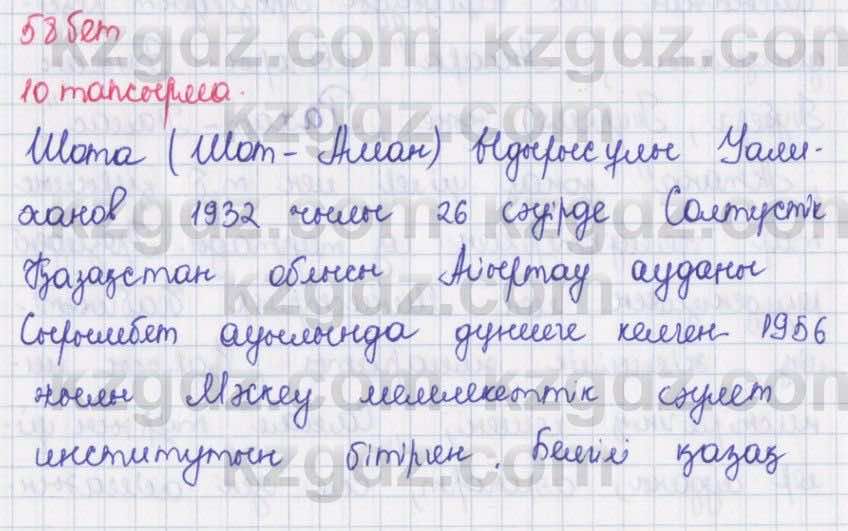 58 бет
10 тапсырма.
Шота (Шот-Аман) Ыдырысұлы Уали-
ханов 1932 жылы 26 сәуірде Солтүстік
Қазақстан облысы Айыртау ауданы
Сырымбет ауылында дүниеге келген. 1956
жылы Мәскеу мемлекеттік сәулет
институтын бітірген. Белгілі қазақ
kzgdz.com kzgdz.com
kzgdz.com kzgdz.com
kzgdz.com kzgdz.com
kzgdz.com kzgdz.com
kzgdz.com kzgdz.com